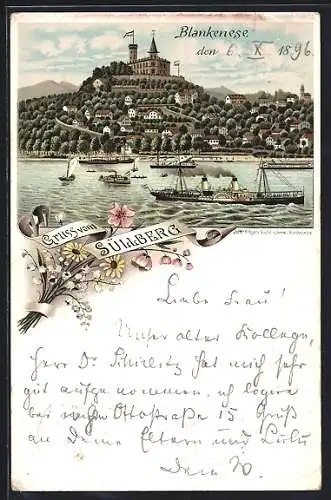 Blankenese
den 6. X. 1896.
Gruss vom
SÜLLBERG
Liebe Frau!
Unser alter Kollege,
Herr Dr. hat mich sehr
gut aufgenommen, ich logire
bei Ottostraße 15. Gruß
an Deine Eltern und Lulu
Dein W.